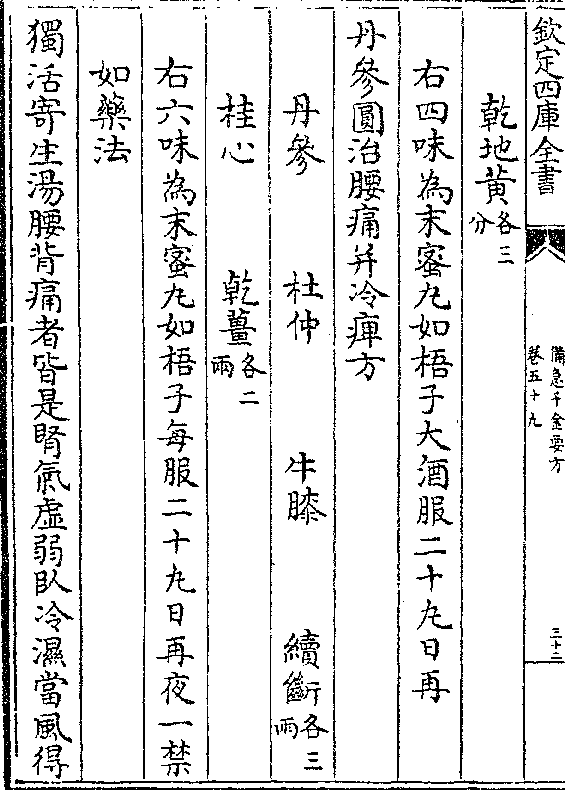 欽定四庫全書
備急千金要方
卷五十九
三十二
乾地黃各三分
右四味為末蜜丸如梧子大酒服二十丸日再
丹參圓治腰痛并冷痺方
丹參 杜仲 牛膝 續斷各三兩
桂心 乾薑各二兩
右六味為末蜜丸如梧子每服二十丸日再夜一禁
如藥法
獨活寄生湯腰背痛者皆是腎氣虛弱臥冷濕當風得